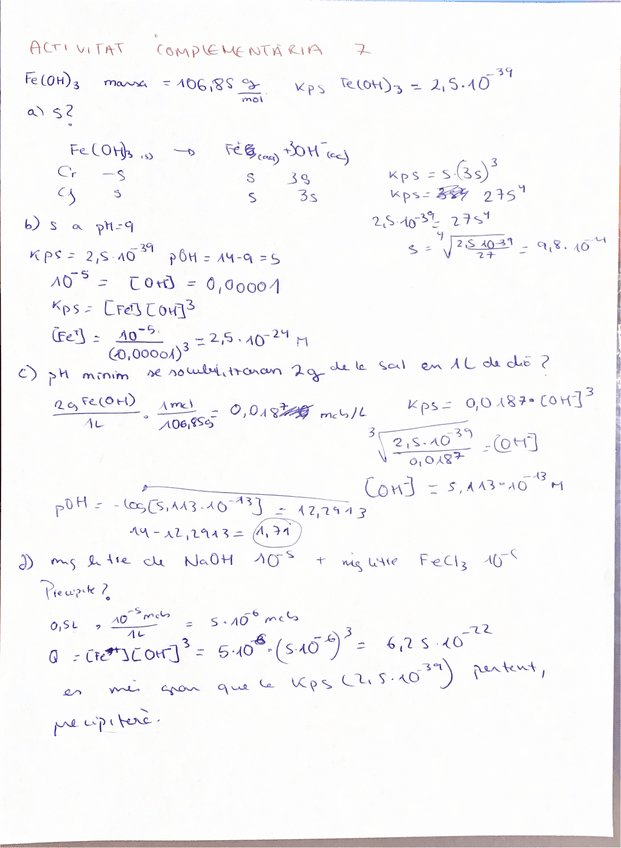 ACTIVITAT COMPLEMENTÀRIA 7
Fe(OH)₃ massa = 106,85 g/mol Kps Fe(OH)₃ = 2,5·10⁻³⁹
a) s?
Fe(OH)₃ (s) → Fe (aq) + 3OH⁻(aq)
Cr -s s 3s
Cf s s 3s
Kps = s·(3s)³
Kps = 27s⁴
2,5·10⁻³⁹ = 27s⁴
s = ⁴√(2,5·10⁻³⁹/27) = 9,8·10⁻¹¹
b) s a pH=9
Kps = 2,5·10⁻³⁹ pOH = 14-9 = 5
10⁻⁵ = [OH] = 0,00001
Kps = [Fe⁺][OH]³
[Fe⁺] = 10⁻⁵/(0,00001)³ = 2,5·10⁻²⁴ M
c) pH mínim se solubilitzaran 2g de la sal en 1L de dió?
2g Fe(OH)/1L · 1mol/106,85g = 0,0187 mols/L
Kps = 0,0187·[OH]³
³√(2,5·10⁻³⁹/0,0187) = [OH]
[OH] = 5,113·10⁻¹³ M
pOH = -log[5,113·10⁻¹³] = 12,2913
14-12,2913 = 1,71
d) mig litre de NaOH 10⁻⁵ + mig litre FeCl₃ 10⁻⁵
Precipita?
0,5L · 10⁻⁵ mols/1L = 5·10⁻⁶ mols
Q = [Fe³⁺][OH]³ = 5·10⁻⁶·(5·10⁻⁶)³ = 6,25·10⁻²²
es més gran que la Kps (2,5·10⁻³⁹) pertant,
precipitarà.